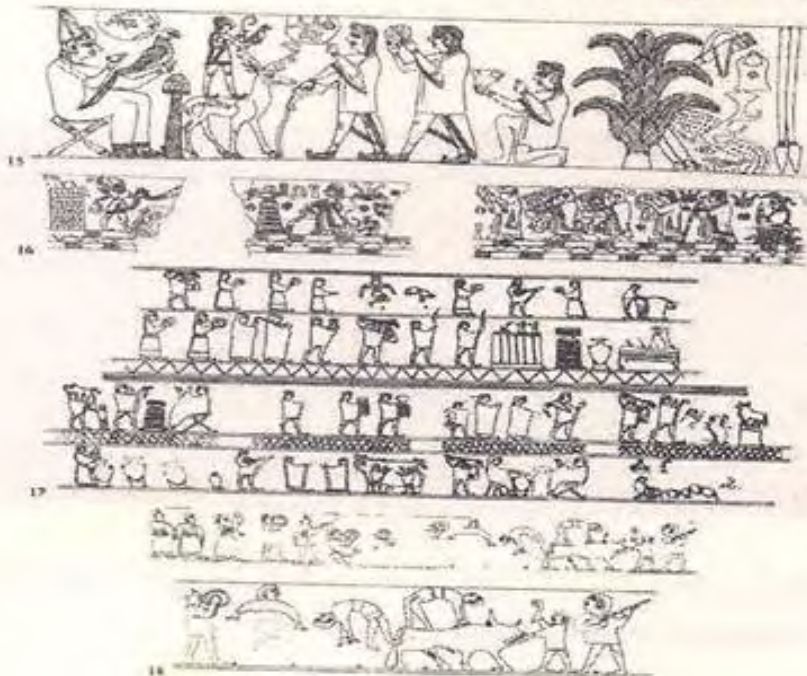 15
16
17
18